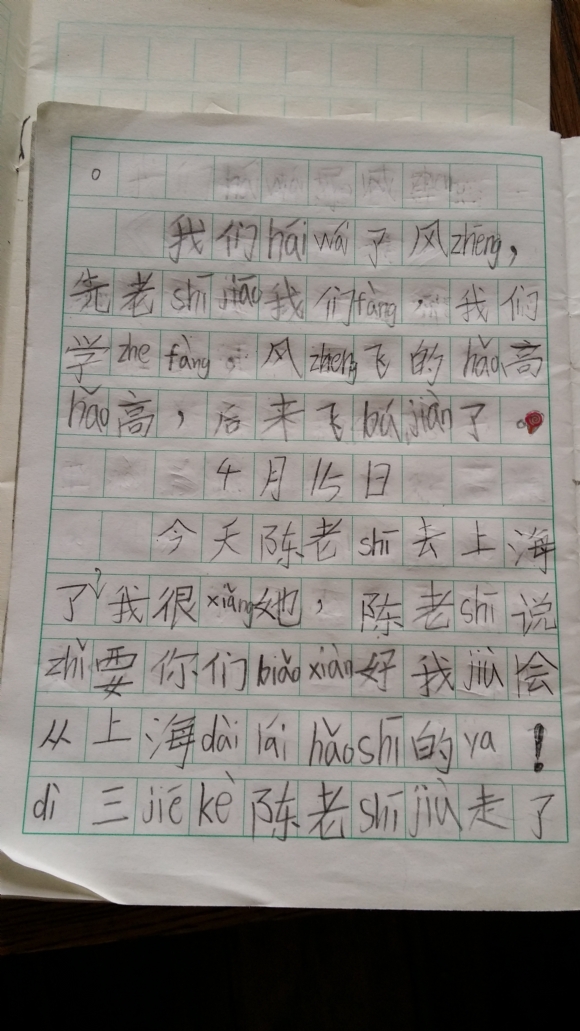 。
我们hái wái了风zhēng，
先老shī jiāo我们fàng，我们
学zhe fàng。风zheng飞的hǎo高
hǎo高，后来飞bú jiàn了。
4月15日
今天陈老shī去上海
了，我很xiǎng她，陈老shī说
zhǐ要你们biǎo xiàn好我jiù会
从上海dài lái hǎo shī的ya！
dì三jiē kè陈老shī jiù走了